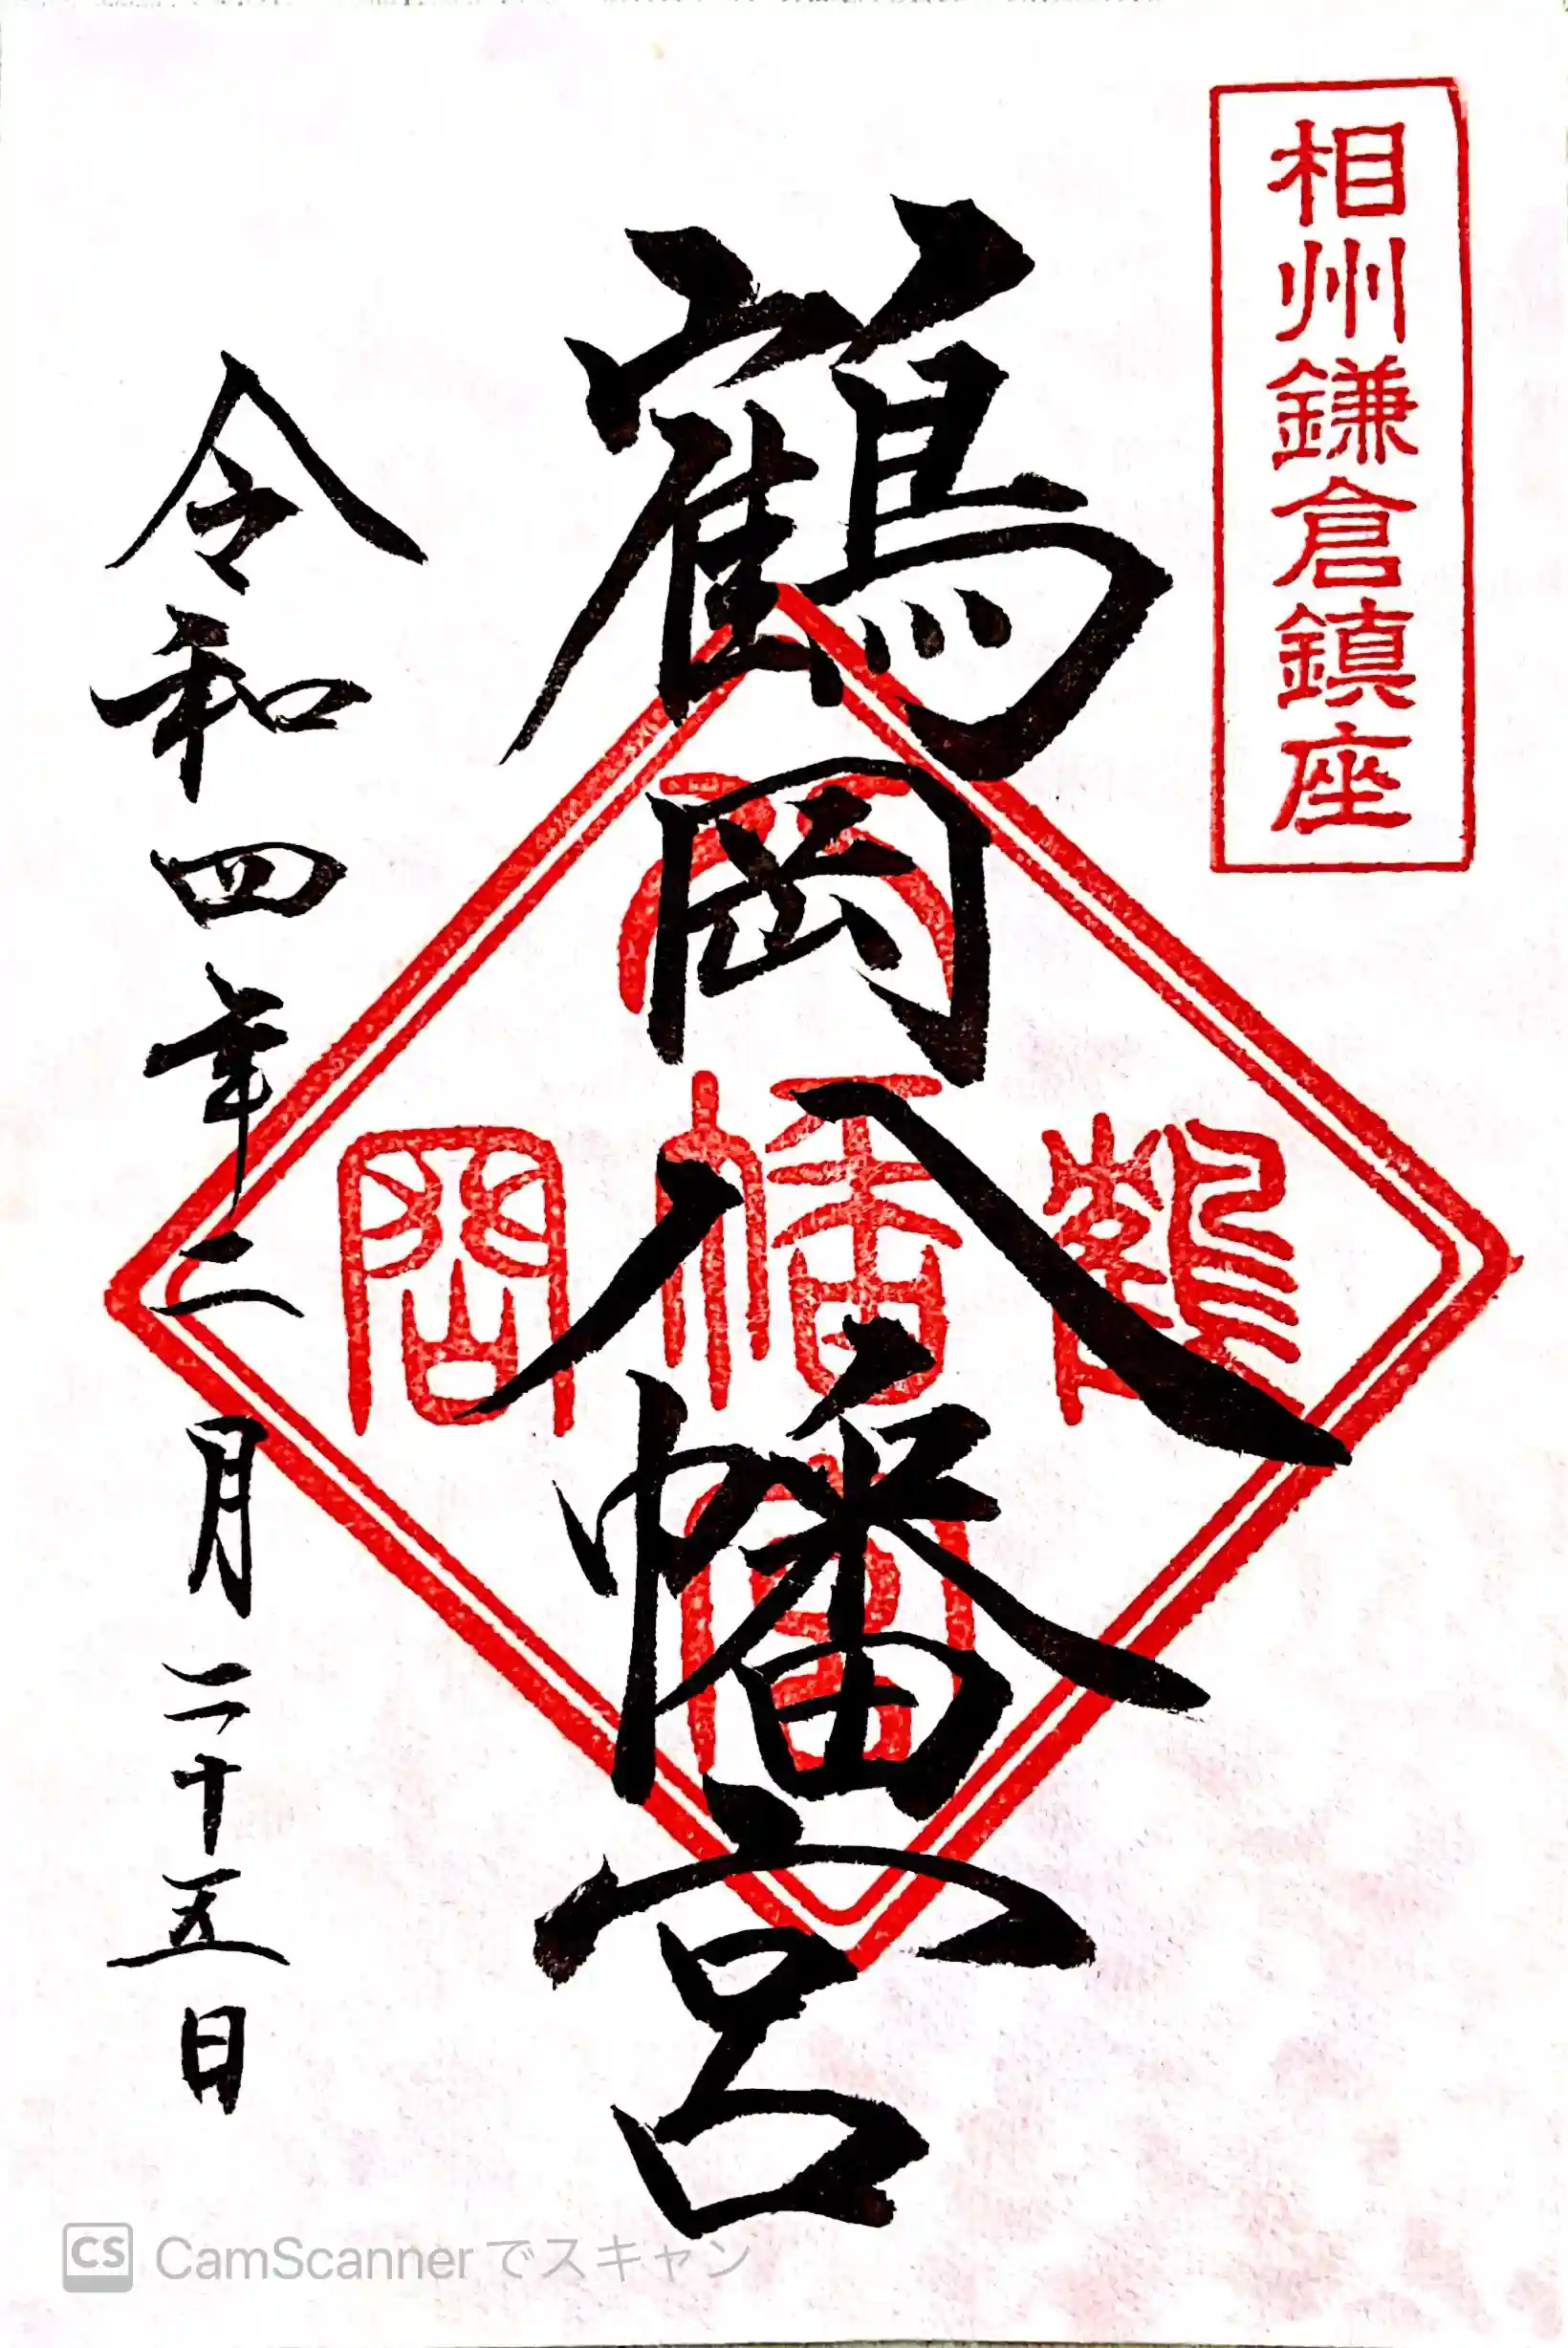 相州鎌倉鎮座
鶴岡八幡宮
八
鶴幡岡
宮
令和四年二月二十五日
CS CamScannerでスキャン